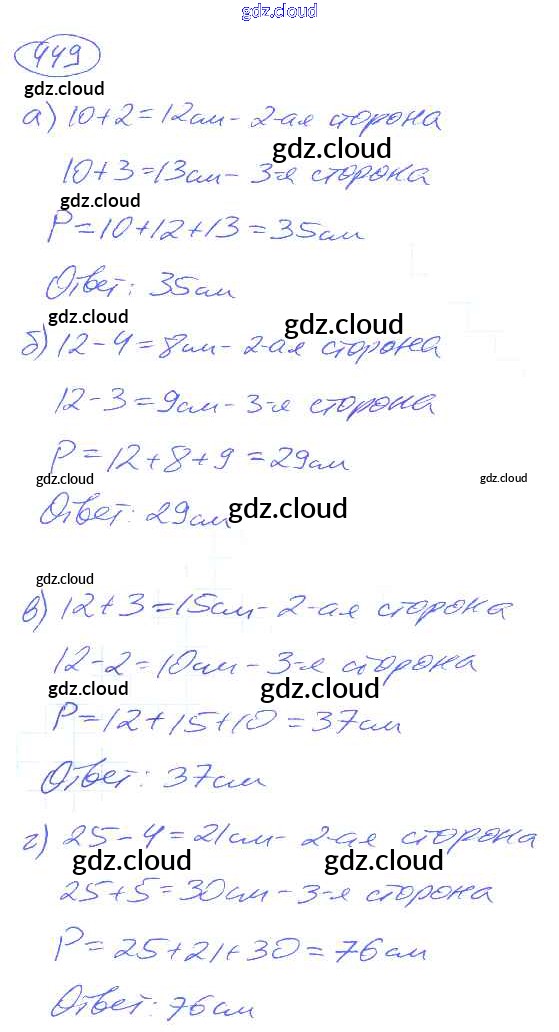 gdz.cloud
449
gdz.cloud
а) 10+2=12см - 2-ая сторона
gdz.cloud
10+3=13см - 3-я сторона
gdz.cloud
P=10+12+13=35см
Ответ: 35см
gdz.cloud gdz.cloud
б) 12-4=8см - 2-ая сторона
12-3=9см - 3-я сторона
P=12+8+9=29см
gdz.cloud gdz.cloud
Ответ: 29см gdz.cloud
gdz.cloud
в) 12+3=15см - 2-ая сторона
12-2=10см - 3-я сторона
gdz.cloud gdz.cloud
P=12+15+10=37см
Ответ: 37см
г) 25-4=21см - 2-ая сторона
gdz.cloud gdz.cloud
25+5=30см - 3-я сторона
P=25+21+30=76см
Ответ: 76см